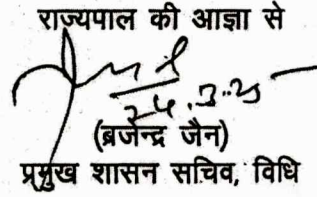 राज्यपाल की आज्ञा से
24.3.25
(ब्रजेन्द्र जैन)
प्रमुख शासन सचिव, विधि